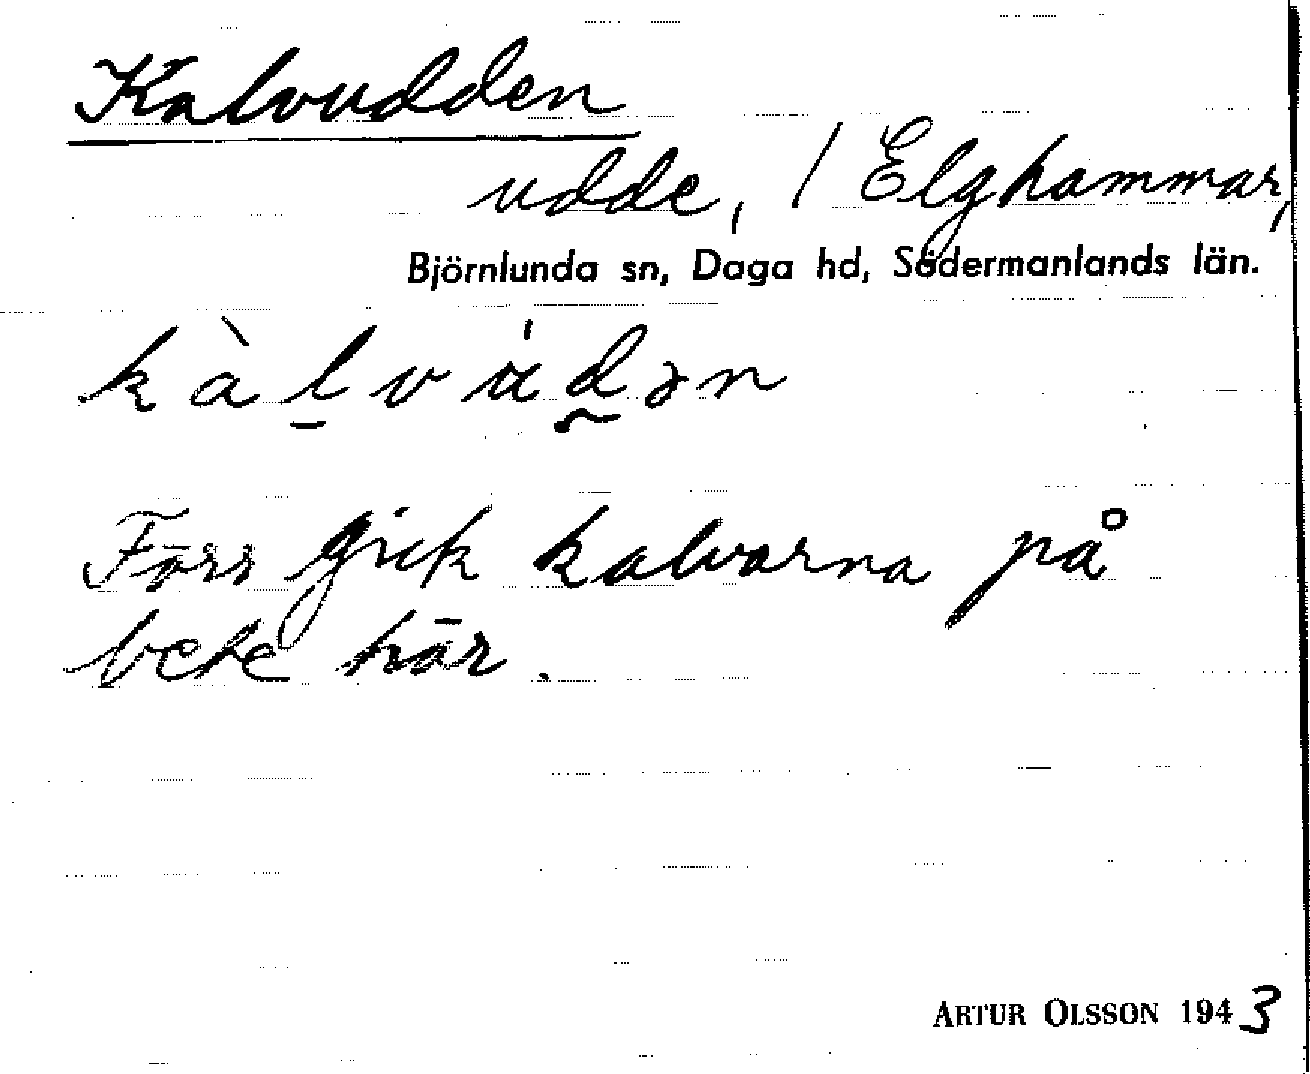 Kalvudden
udde, / Elghammar,
Björnlunda sn, Daga hd, Södermanlands län.
Förr gick kalvarna på
bete här.
ARTUR OLSSON 1943